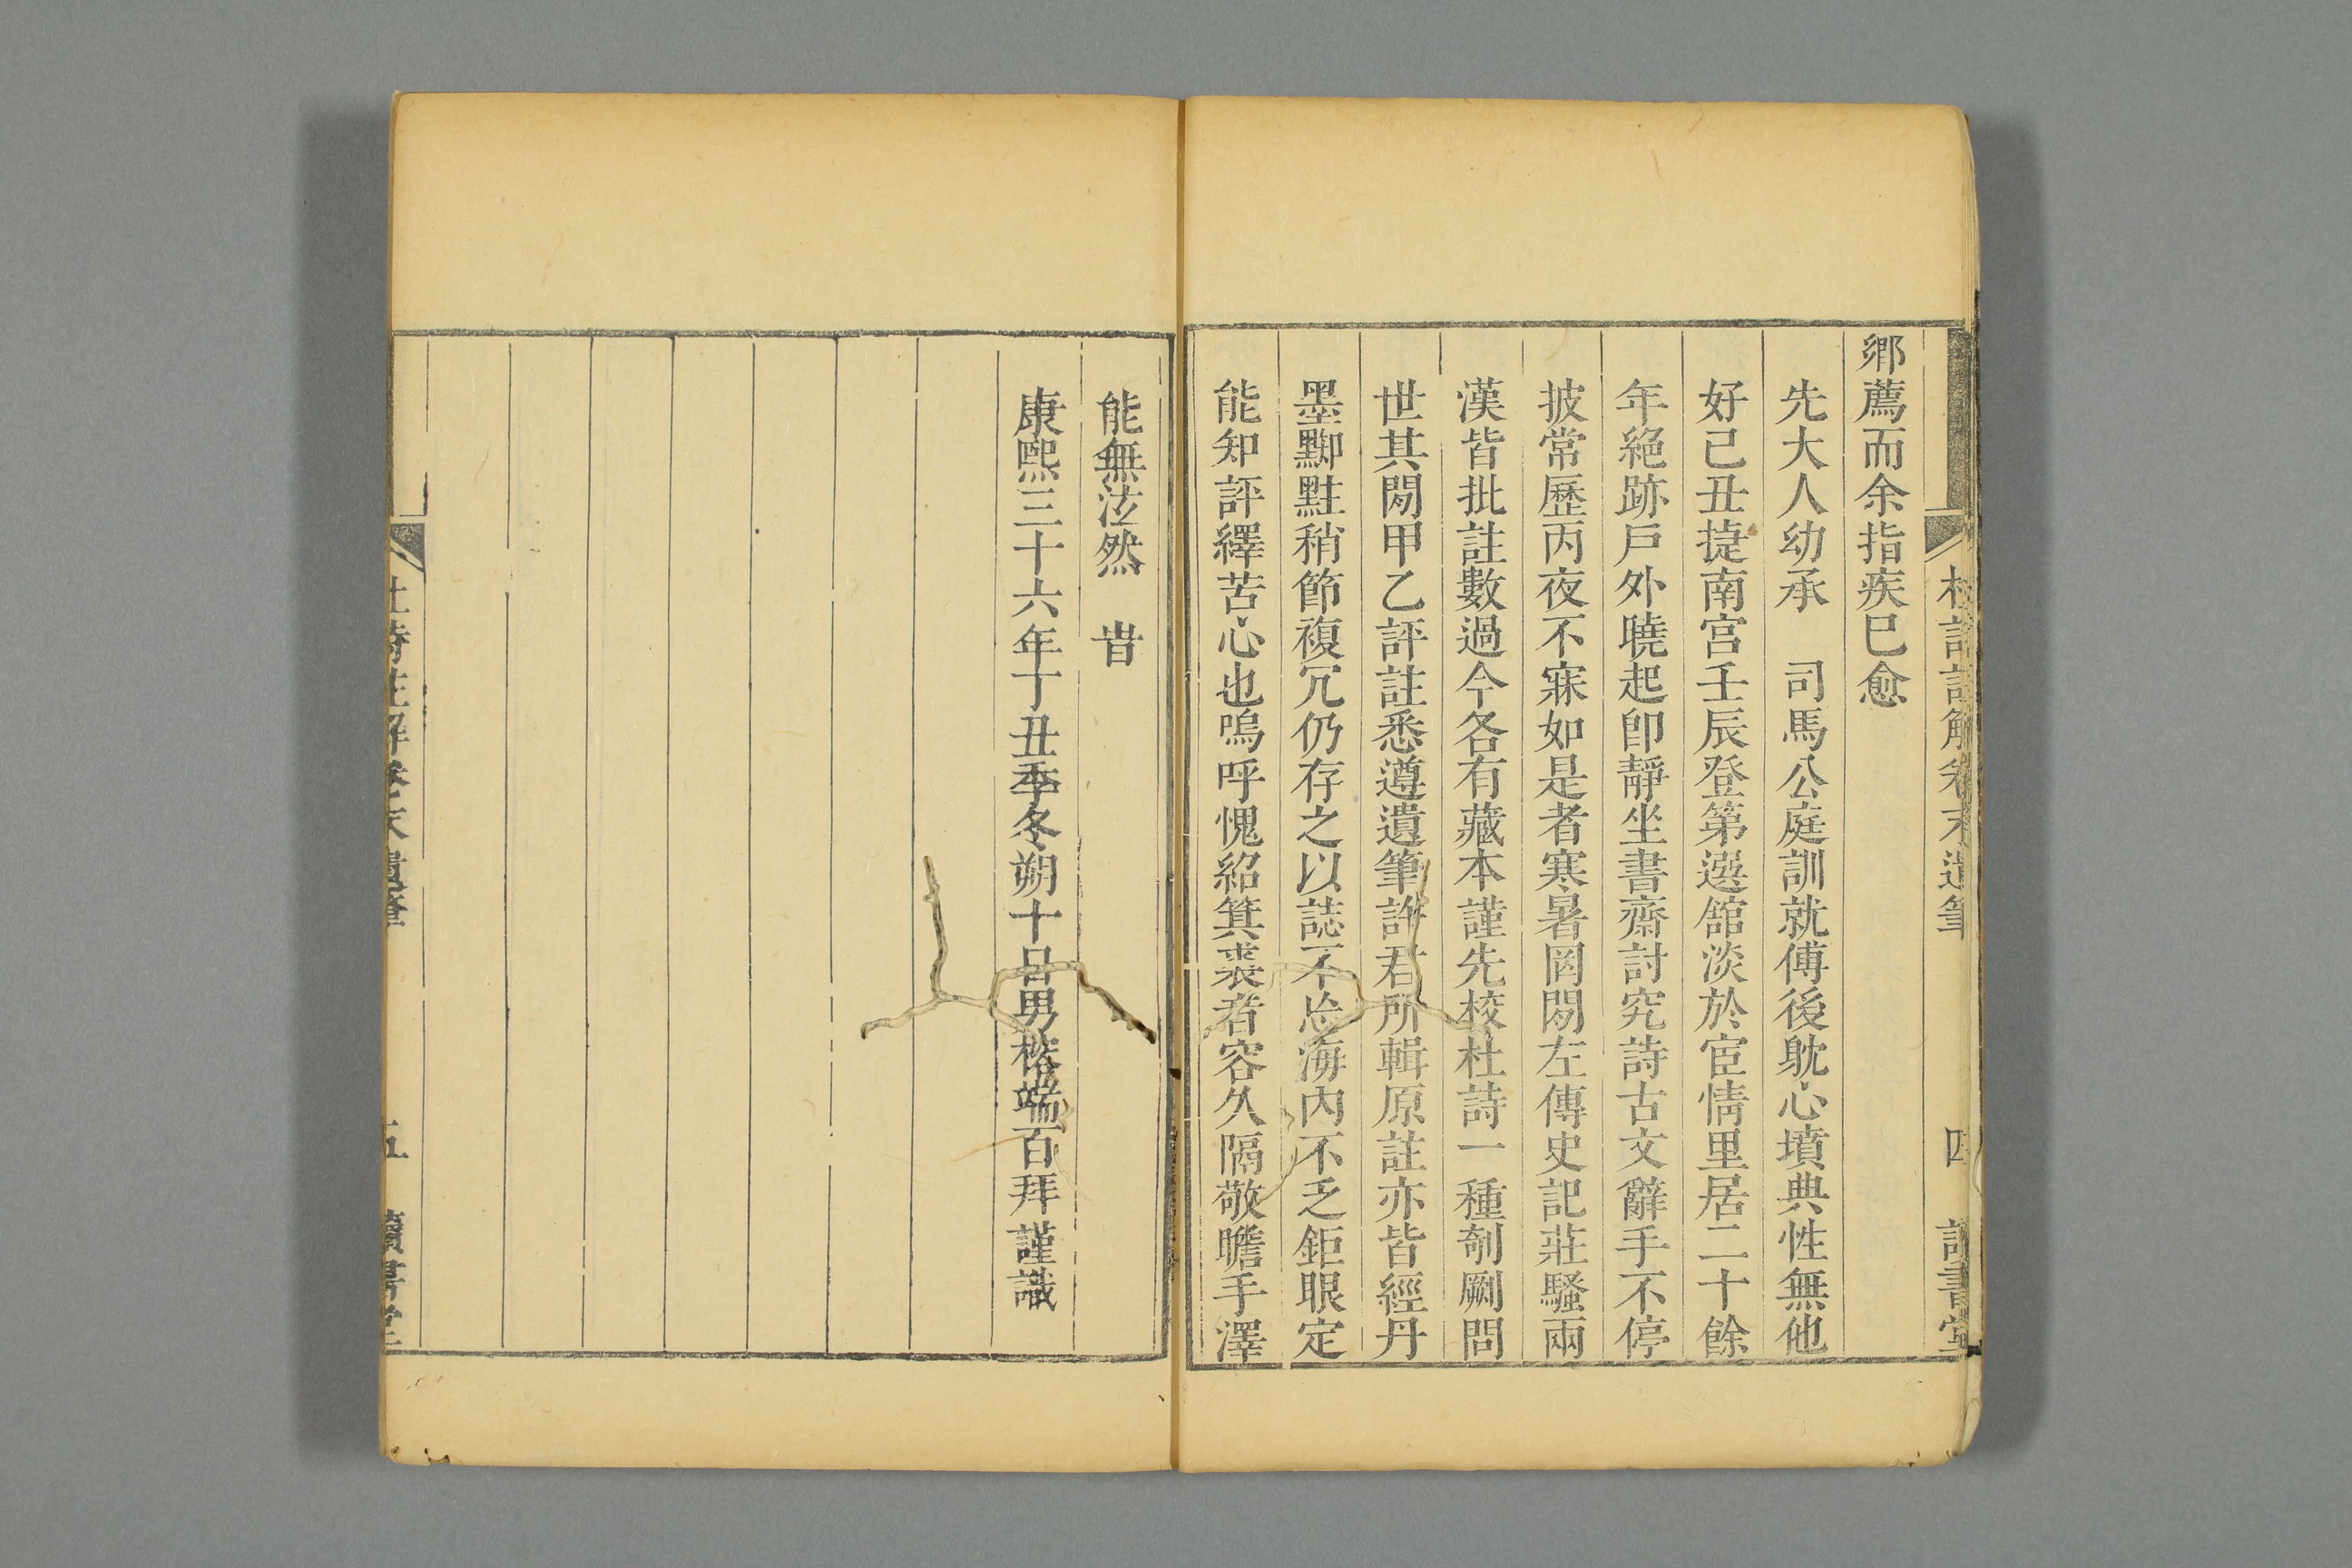 杜詩註解卷末遺筆 四 讀書堂
鄉薦而余指疾已愈
先大人幼承 司馬公庭訓就傅後躭心墳典性無他
好己丑㨗南宮壬辰登第選舘淡於宦情里居二十餘
年絕跡戶外曉起卽靜坐書齋討究詩古文辭手不停
披常歷丙夜不寐如是者寒暑罔閒左傳史記莊騷兩
漢皆批註數過今各有藏本謹先校杜詩一種剞劂問
世其閒甲乙評註悉遵遺筆許君所輯原註亦皆經丹
墨黝黈稍節複冗仍存之以誌不忘海內不乏鉅眼定
能知評繹苦心也嗚呼愧紹箕裘者容久隔敬瞻手澤
能無泫然 旹
康熙三十六年丁丑季冬朔十日男榕端百拜謹識
杜詩註解卷末遺筆 五 讀書堂